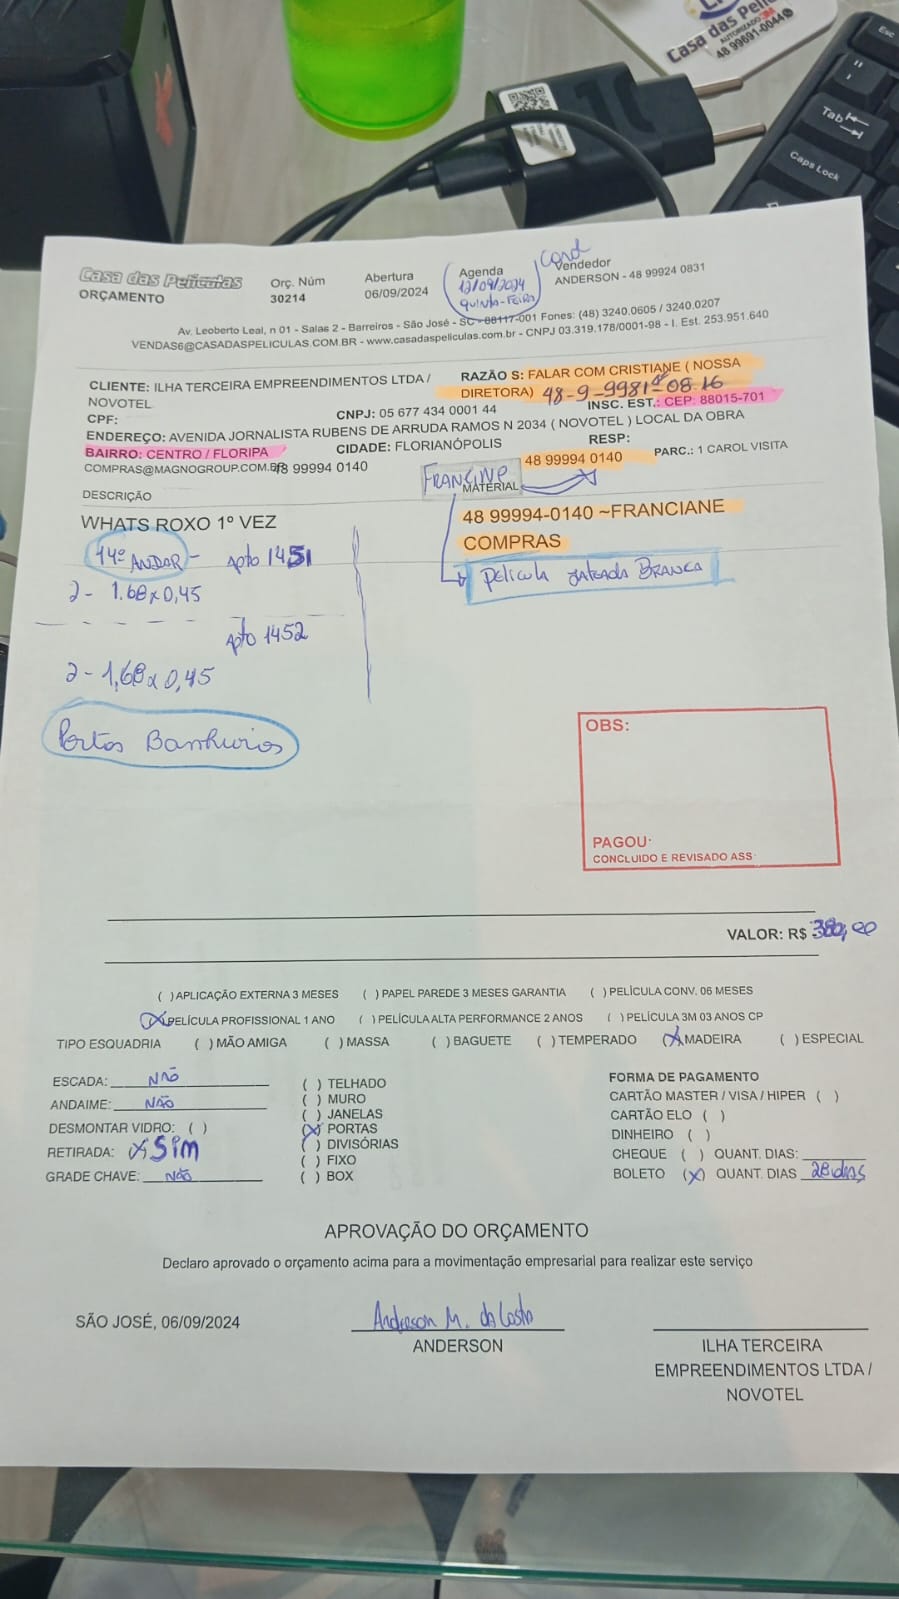 Casa das Películas
AUTORIZADO 3M
48 99691-0044
Esc
Tab
Caps Lock
Casa das Películas
ORÇAMENTO
Orç. Núm
30214
Abertura
06/09/2024
Agenda
12/09/2024
QUINTA-FEIRA
Vendedor
ANDERSON - 48 99924 0831
Av. Leoberto Leal, n 01 - Salas 2 - Barreiros - São José - SC - 88117-001 Fones: (48) 3240.0605 / 3240.0207
VENDAS6@CASADASPELICULAS.COM.BR - www.casadaspeliculas.com.br - CNPJ 03.319.178/0001-98 - I. Est. 253.951.640
CLIENTE: ILHA TERCEIRA EMPREENDIMENTOS LTDA /
NOVOTEL
RAZÃO S: FALAR COM CRISTIANE ( NOSSA
DIRETORA) 48-9-9981-0816
CPF:
CNPJ: 05 677 434 0001 44
INSC. EST.: CEP: 88015-701
ENDEREÇO: AVENIDA JORNALISTA RUBENS DE ARRUDA RAMOS N 2034 ( NOVOTEL ) LOCAL DA OBRA
BAIRRO: CENTRO / FLORIPA
CIDADE: FLORIANÓPOLIS
RESP:
COMPRAS@MAGNOGROUP.COM.BR
48 99994 0140
48 99994 0140
PARC.: 1 CAROL VISITA
FRANCINE
DESCRIÇÃO
MATERIAL
WHATS ROXO 1º VEZ
48 99994-0140 ~FRANCIANE
COMPRAS
14º ANDAR - Apto 1451
Película Jateada BRANCA
2 - 1.68 x 0,45
Apto 1452
2 - 1,68 x 0,45
Portas Banheiros
OBS:
PAGOU:
CONCLUIDO E REVISADO ASS:
VALOR: R$ 380,00
( ) APLICAÇÃO EXTERNA 3 MESES ( ) PAPEL PAREDE 3 MESES GARANTIA ( ) PELÍCULA CONV. 06 MESES
(X) PELÍCULA PROFISSIONAL 1 ANO ( ) PELÍCULA ALTA PERFORMANCE 2 ANOS ( ) PELÍCULA 3M 03 ANOS CP
TIPO ESQUADRIA ( ) MÃO AMIGA ( ) MASSA ( ) BAGUETE ( ) TEMPERADO (X) MADEIRA ( ) ESPECIAL
ESCADA: NÃO
ANDAIME: NÃO
DESMONTAR VIDRO: ( )
RETIRADA: (X SIM
GRADE CHAVE: NÃO
( ) TELHADO
( ) MURO
( ) JANELAS
(X) PORTAS
( ) DIVISÓRIAS
( ) FIXO
( ) BOX
FORMA DE PAGAMENTO
CARTÃO MASTER / VISA / HIPER ( )
CARTÃO ELO ( )
DINHEIRO ( )
CHEQUE ( ) QUANT. DIAS:
BOLETO (X) QUANT. DIAS 28 dias
APROVAÇÃO DO ORÇAMENTO
Declaro aprovado o orçamento acima para a movimentação empresarial para realizar este serviço
SÃO JOSÉ, 06/09/2024
Anderson M. da Costa
ANDERSON
ILHA TERCEIRA
EMPREENDIMENTOS LTDA /
NOVOTEL